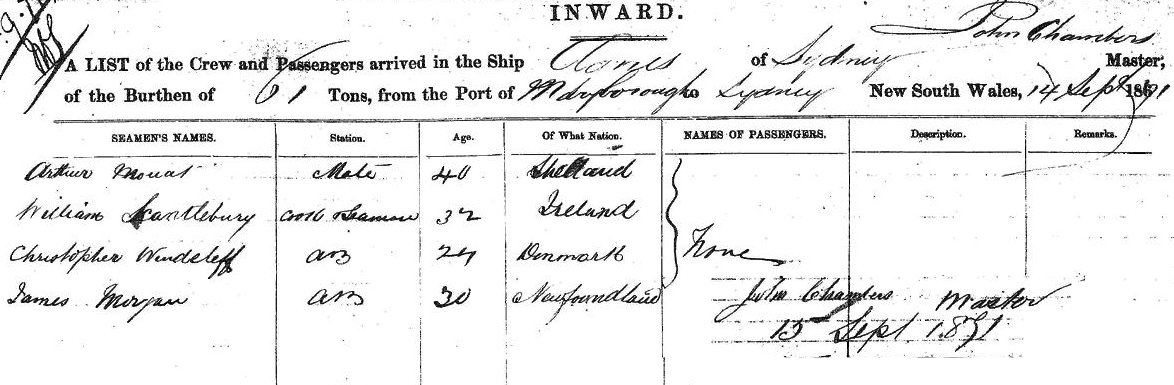 INWARD.
John Chambers
A LIST of the Crew and Passengers arrived in the Ship Agnes of Sydney Master,
of the Burthen of 61 Tons, from the Port of Maryborough to Sydney New South Wales, 14 Sept 1871
SEAMEN'S NAMES. Station. Age. Of What Nation. NAMES OF PASSENGERS. Description. Remarks.
Arthur Mouat Mate 40 Shetland
William Kantlebury Cook & Seaman 32 Ireland
Christopher Windeleff AB 24 Denmark None
James Morgan AB 30 Newfoundland John Chambers Master
15 Sept 1871